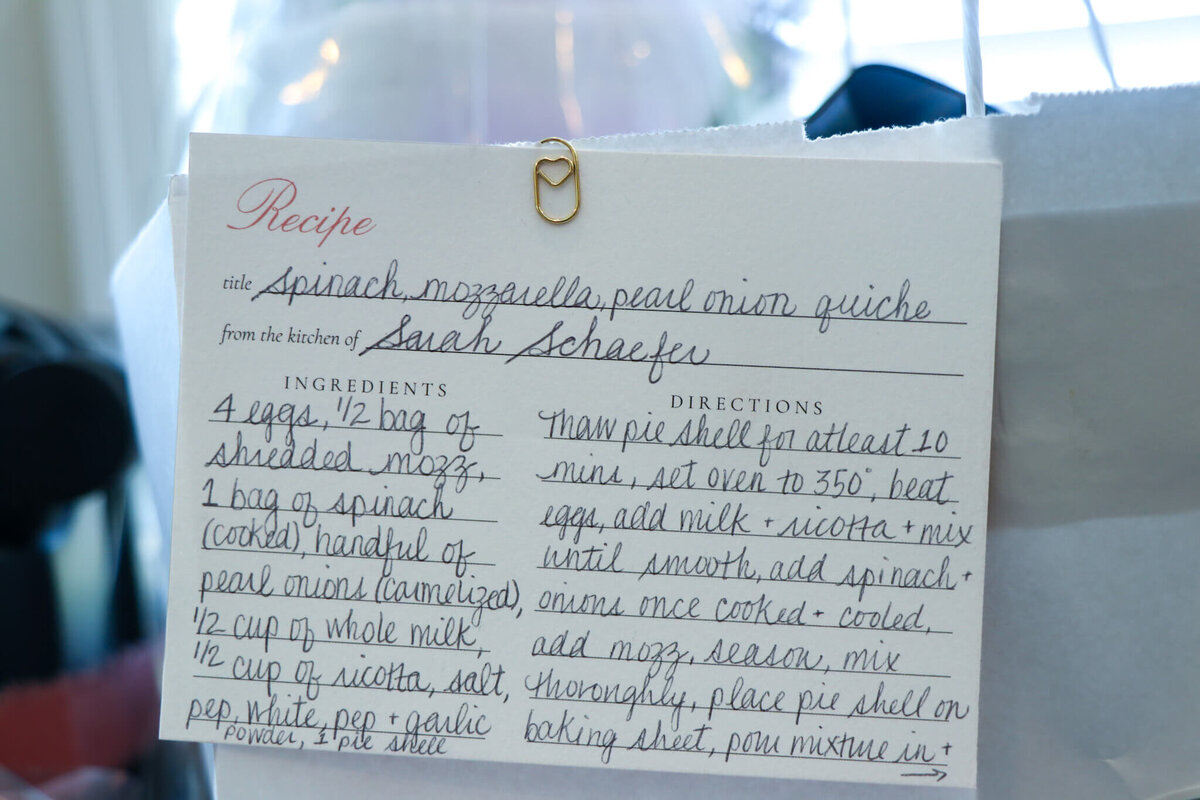 Recipe
title spinach, mozzarella, pearl onion quiche
from the kitchen of Sarah Schaefer
INGREDIENTS
4 eggs, 1/2 bag of
shredded mozz,
1 bag of spinach
(cooked), handful of
pearl onions (carmelized),
1/2 cup of whole milk,
1/2 cup of ricotta, salt,
pep, white, pep + garlic
powder, 1 pie shell
DIRECTIONS
Thaw pie shell for atleast 10
mins, set oven to 350°, beat
eggs, add milk + ricotta + mix
until smooth, add spinach +
onions once cooked + cooled,
add mozz, season, mix
thoroughly, place pie shell on
baking sheet, pour mixture in +
→